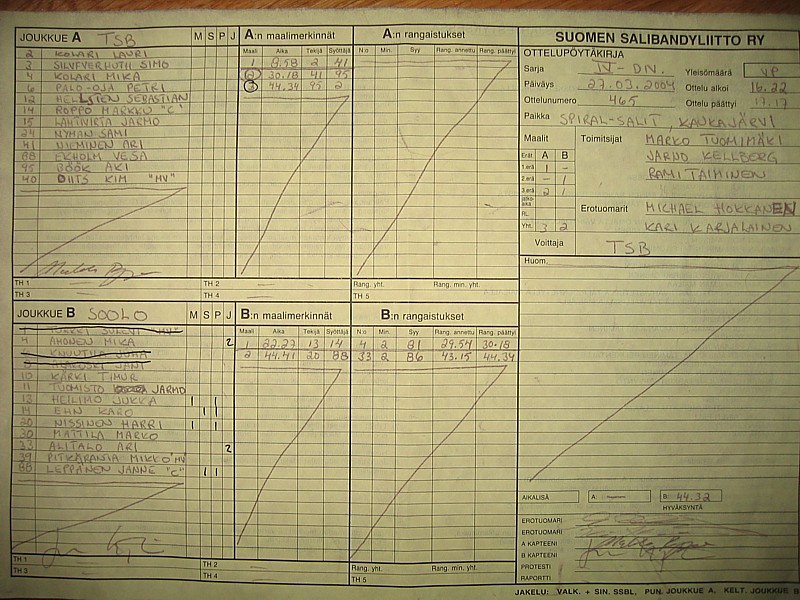 JOUKKUE A TSB M S P J A:n maalimerkinnät A:n rangaistukset
Maali Aika Tekijä Syöttäjä N:o Min. Syy Rang. annettu Rang. päättyi
2 KOLARI LAURI
3 SILFVERHUTH SIMO 1 8.58 2 41
4 KOLARI MIKA 2 30.18 41 95
6 PALO-OJA PETRI 3 44.34 95 2
12 HELLSTEN SEBASTIAN
14 ROPPO MARKKU "C"
15 LAHTIVIRTA JARMO
24 NYMAN SAMI
41 NIEMINEN ARI
88 EKHOLM VESA
95 BÖÖK AKI
40 KIM "MV"
TH 1 TH 2 Rang. yht. Rang. min. yht.
TH 3 TH 4 TH 5
JOUKKUE B SOOLO M S P J B:n maalimerkinnät B:n rangaistukset
Maali Aika Tekijä Syöttäjä N:o Min. Syy Rang. annettu Rang. päättyi
4 AHONEN MIKA 2 1 22.27 13 14 4 2 81 29.54 30.18
KNUUTILA JUHA 2 44.41 20 88 33 2 86 43.15 44.34
10 KÄRKI TIMUR
11 TUOMISTO JARMO
13 HEILIMO JUKKA I I
14 EHN KARO I I
20 NISSINEN HARRI I I
30 MATTILA MARKO
33 ALITALO ARI 2
39 PITKÄRANTA MIKKO "MV"
88 LEPPÄNEN JANNE "C" I I
TH 1 TH 2 Rang. yht. Rang. min. yht.
TH 3 TH 4 TH 5
SUOMEN SALIBANDYLIITTO RY
OTTELUPÖYTÄKIRJA
Sarja IV-DIV. Yleisömäärä YP
Päiväys 27.03.2004 Ottelu alkoi 16.22
Ottelunumero 465 Ottelu päättyi 17.17
Paikka SPIRAL-SALIT, KANKAJÄRVI
Maalit Toimitsijat MARKO TUOMIMÄKI
Erät A B JARNO KELLBERG
1.erä 1 - RAMI TAIMINEN
2.erä - 1
3.erä 2 1
Jatkoaika
RL Erotuomarit MICHAEL HOKKANEN
Yht. 3 2 KARI KARJALAINEN
Voittaja TSB
Huom.
AIKALISÄ A: — B: 44.32
HYVÄKSYNTÄ
EROTUOMARI
EROTUOMARI
A KAPTEENI
B KAPTEENI
PROTESTI —
RAPORTTI
JAKELU: VALK. + SIN. SSBL, PUN. JOUKKUE A, KELT. JOUKKUE B